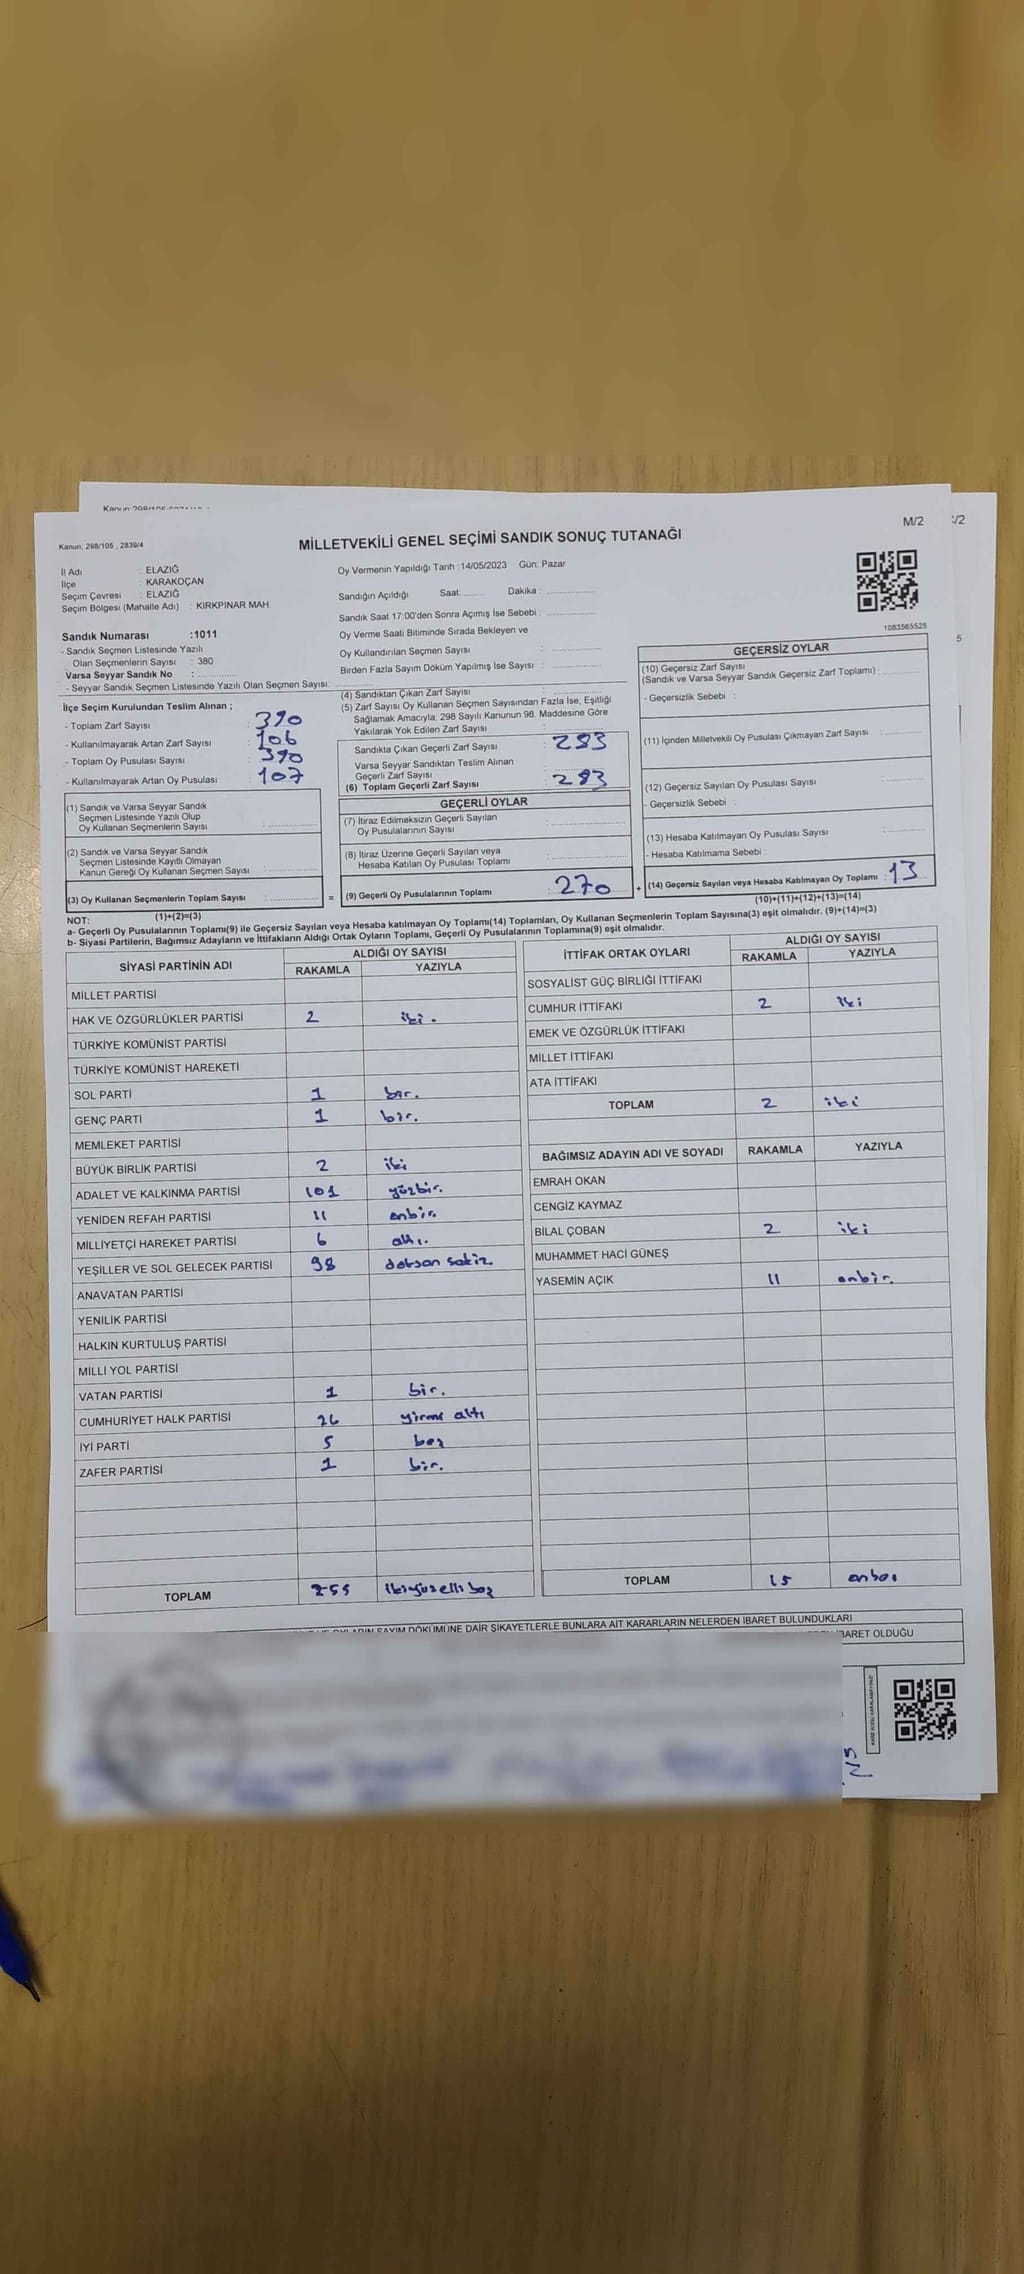 Kanun: 298/105 , 2839/4
MİLLETVEKİLİ GENEL SEÇİMİ SANDIK SONUÇ TUTANAĞI
M/2
İl Adı : ELAZIĞ
İlçe : KARAKOÇAN
Seçim Çevresi : ELAZIĞ
Seçim Bölgesi (Mahalle Adı) : KIRKPINAR MAH
Sandık Numarası :1011
- Sandık Seçmen Listesinde Yazılı
Olan Seçmenlerin Sayısı : 380
Varsa Seyyar Sandık No :
- Seyyar Sandık Seçmen Listesinde Yazılı Olan Seçmen Sayısı:
Oy Vermenin Yapıldığı Tarih :14/05/2023 Gün: Pazar
Sandığın Açıldığı Saat: Dakika :
Sandık Saat 17:00'den Sonra Açımış İse Sebebi :
Oy Verme Saati Bitiminde Sırada Bekleyen ve
Oy Kullandırılan Seçmen Sayısı :
Birden Fazla Sayım Döküm Yapılmış İse Sayısı :
1083565525
İlçe Seçim Kurulundan Teslim Alınan ;
- Toplam Zarf Sayısı : 390
- Kullanılmayarak Artan Zarf Sayısı : 106
- Toplam Oy Pusulası Sayısı : 390
- Kullanılmayarak Artan Oy Pusulası : 107
(1) Sandık ve Varsa Seyyar Sandık
Seçmen Listesinde Yazılı Olup
Oy Kullanan Seçmenlerin Sayısı :
(2) Sandık ve Varsa Seyyar Sandık
Seçmen Listesinde Kayıtlı Olmayan
Kanun Gereği Oy Kullanan Seçmen Sayısı :
(3) Oy Kullanan Seçmenlerin Toplam Sayısı :
(1)+(2)=(3)
(4) Sandıktan Çıkan Zarf Sayısı :
(5) Zarf Sayısı Oy Kullanan Seçmen Sayısından Fazla İse, Eşitliği
Sağlamak Amacıyla; 298 Sayılı Kanunun 98. Maddesine Göre
Yakılarak Yok Edilen Zarf Sayısı :
Sandıkta Çıkan Geçerli Zarf Sayısı : 283
Varsa Seyyar Sandıktan Teslim Alınan
Geçerli Zarf Sayısı :
(6) Toplam Geçerli Zarf Sayısı : 283
GEÇERLİ OYLAR
(7) İtiraz Edilmeksizin Geçerli Sayılan
Oy Pusulalarının Sayısı :
(8) İtiraz Üzerine Geçerli Sayılan veya
Hesaba Katılan Oy Pusulası Toplamı :
= (9) Geçerli Oy Pusulalarının Toplamı : 270 +
GEÇERSİZ OYLAR
(10) Geçersiz Zarf Sayısı
(Sandık ve Varsa Seyyar Sandık Geçersiz Zarf Toplamı) :
- Geçersizlik Sebebi :
(11) İçinden Milletvekili Oy Pusulası Çıkmayan Zarf Sayısı :
(12) Geçersiz Sayılan Oy Pusulası Sayısı :
- Geçersizlik Sebebi :
(13) Hesaba Katılmayan Oy Pusulası Sayısı :
- Hesaba Katılmama Sebebi :
(14) Geçersiz Sayılan veya Hesaba Katılmayan Oy Toplamı : 13
(10)+(11)+(12)+(13)=(14)
NOT:
a- Geçerli Oy Pusulalarının Toplamı(9) ile Geçersiz Sayılan veya Hesaba katılmayan Oy Toplamı(14) Toplamları, Oy Kullanan Seçmenlerin Toplam Sayısına(3) eşit olmalıdır. (9)+(14)=(3)
b- Siyasi Partilerin, Bağımsız Adayların ve İttifakların Aldığı Ortak Oyların Toplamı, Geçerli Oy Pusulalarının Toplamına(9) eşit olmalıdır.
SİYASİ PARTİNİN ADI ALDIĞI OY SAYISI
RAKAMLA YAZIYLA
MİLLET PARTİSİ
HAK VE ÖZGÜRLÜKLER PARTİSİ 2 iki.
TÜRKİYE KOMÜNİST PARTİSİ
TÜRKİYE KOMÜNİST HAREKETİ
SOL PARTİ 1 bir.
GENÇ PARTİ 1 bir.
MEMLEKET PARTİSİ
BÜYÜK BİRLİK PARTİSİ 2 iki
ADALET VE KALKINMA PARTİSİ 101 yüzbir.
YENİDEN REFAH PARTİSİ 11 onbir.
MİLLİYETÇİ HAREKET PARTİSİ 6 altı.
YEŞİLLER VE SOL GELECEK PARTİSİ 98 doksan sekiz
ANAVATAN PARTİSİ
YENİLİK PARTİSİ
HALKIN KURTULUŞ PARTİSİ
MİLLİ YOL PARTİSİ
VATAN PARTİSİ 1 bir.
CUMHURİYET HALK PARTİSİ 26 yirmi altı
İYİ PARTİ 5 beş
ZAFER PARTİSİ 1 bir.
TOPLAM 255 ikiyüzelli beş
İTTİFAK ORTAK OYLARI ALDIĞI OY SAYISI
RAKAMLA YAZIYLA
SOSYALİST GÜÇ BİRLİĞİ İTTİFAKI
CUMHUR İTTİFAKI 2 iki
EMEK VE ÖZGÜRLÜK İTTİFAKI
MİLLET İTTİFAKI
ATA İTTİFAKI
TOPLAM 2 iki
BAĞIMSIZ ADAYIN ADI VE SOYADI RAKAMLA YAZIYLA
EMRAH OKAN
CENGİZ KAYMAZ
BİLAL ÇOBAN 2 iki
MUHAMMET HACİ GÜNEŞ
YASEMİN AÇIK 11 onbir.
TOPLAM 15 onbeş
OYLARIN SAYIM DÖKÜMÜNE DAİR ŞİKAYETLERLE BUNLARA AİT KARARLARIN NELERDEN İBARET BULUNDUKLARI
İBARET OLDUĞU